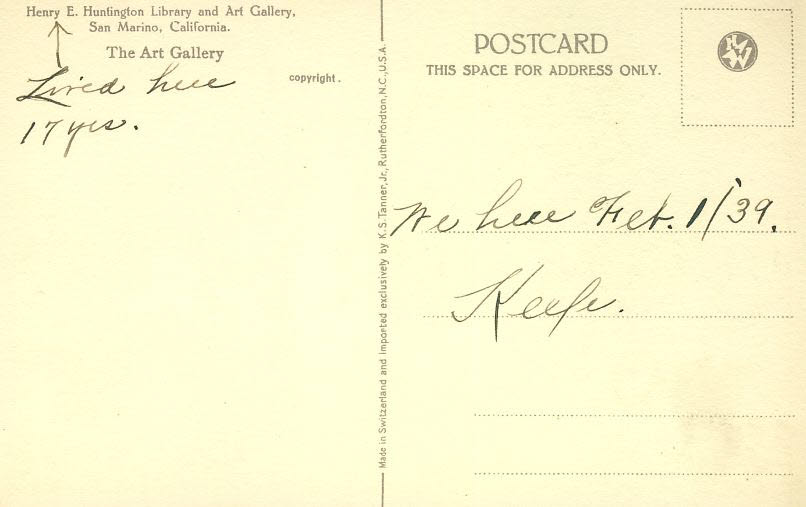 Henry E. Huntington Library and Art Gallery,
San Marino, California.
The Art Gallery
copyright.
Lived here
17 yrs.
Made in Switzerland and imported exclusively by K.S. Tanner, Jr., Rutherfordton, N.C., U.S.A.
POSTCARD
THIS SPACE FOR ADDRESS ONLY.
We here Feb. 1/39.
Keefe.